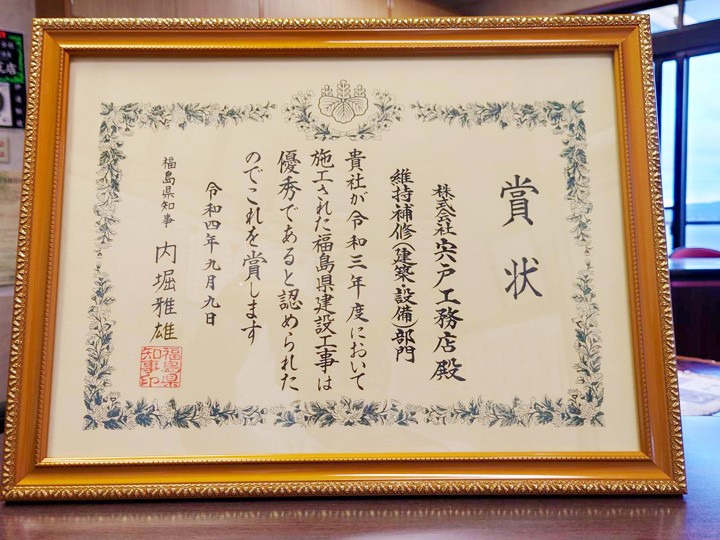 賞状
株式会社宍戸工務店殿
維持補修(建築・設備)部門
貴社が令和三年度において
施工された福島県建設工事は
優秀であると認められた
のでこれを賞します
令和四年九月九日
福島県知事 内堀雅雄
福島県
知事印